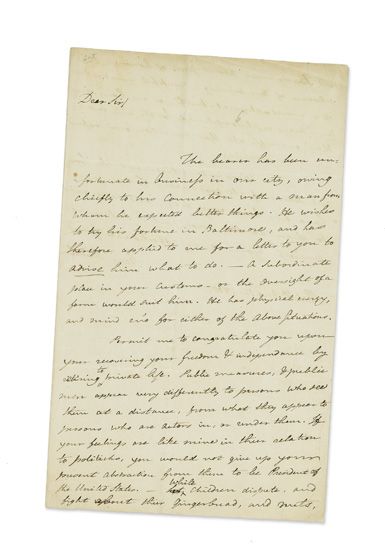 Dear Sir/
The bearer has been un-
fortunate in business in our city, owing
chiefly to his connection with a man from
whom he expected better things. He wishes
to try his fortune in Baltimore, and has
therefore applied to me for a letter to you to
advise him what to do. — A subordinate
place in your Customs – or the oversight of a
farm would suit him. He has physical energy,
and mind eno' for either of the above situations.
Permit me to congratulate you upon
your recovering your freedom & independance by
retiring to private life. Public measures, & public
men appear very differently to persons who see
them at a distance, from what they appear to
persons who are actors in, or under them. If
your feelings are like mine in their relation
to politicks, you would not give up your
present abstraction from them to be President of
the United States. – while
Children dispute, and
fight about their Gingerbread, and nuts,